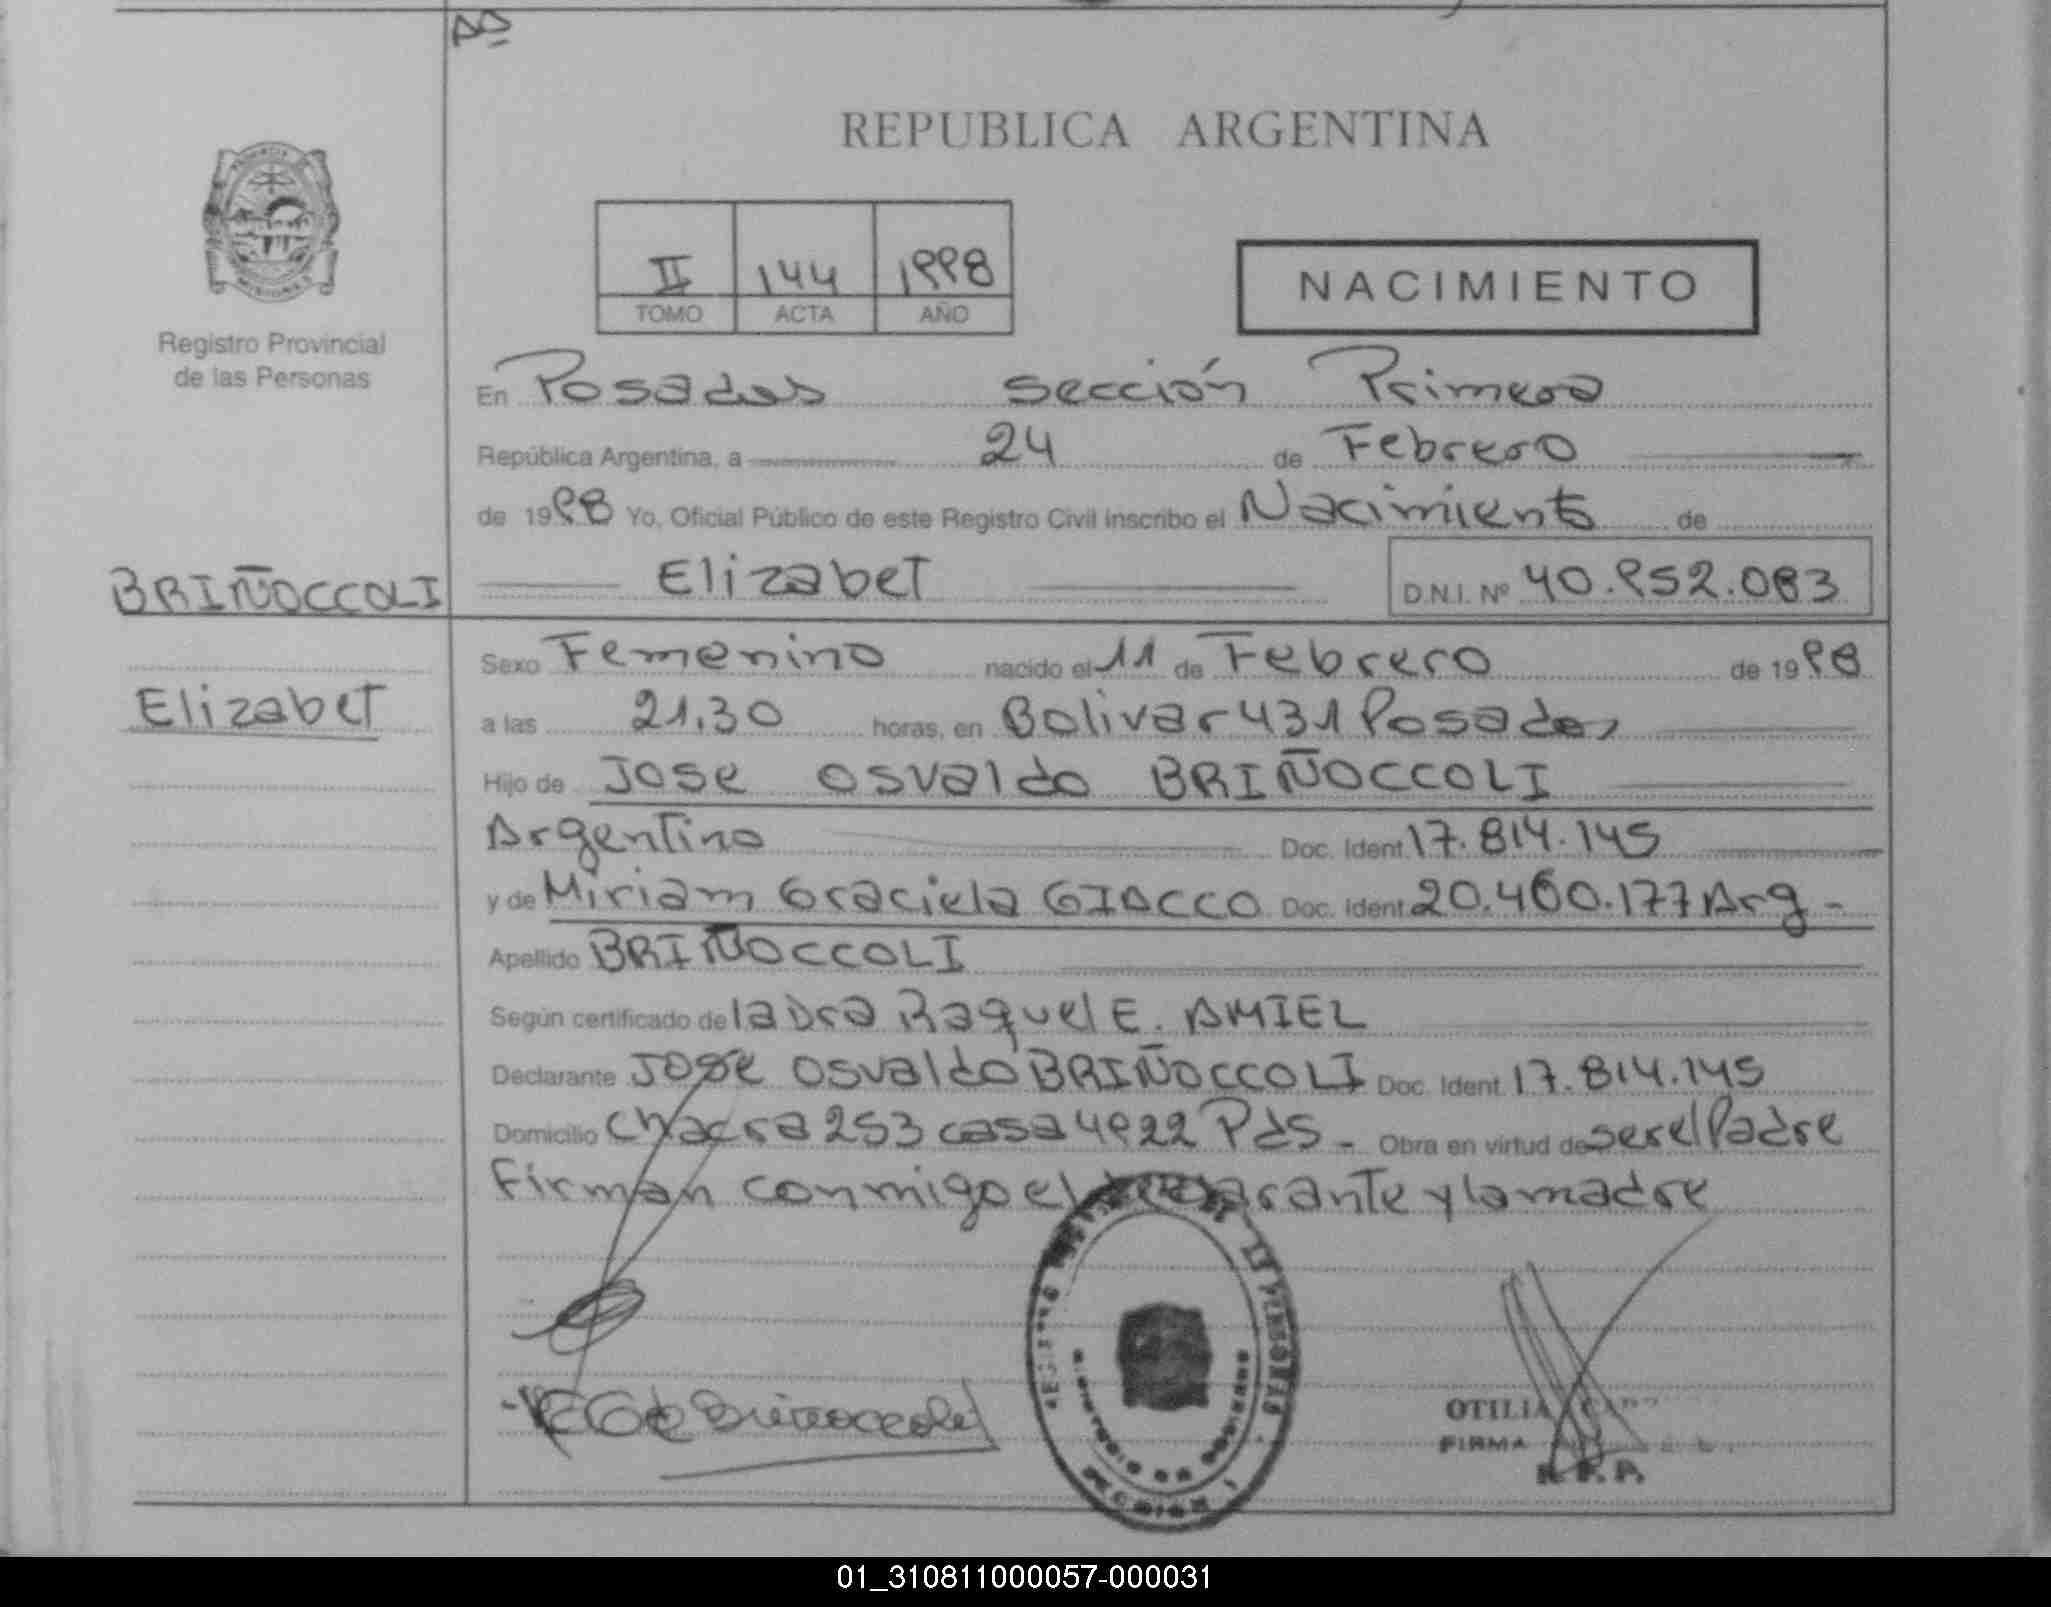 REPUBLICA ARGENTINA
II 144 1998
TOMO ACTA AÑO
NACIMIENTO
Registro Provincial
de las Personas
En Posadas sección Primera
República Argentina, a 24 de Febrero
de 1998 Yo, Oficial Público de este Registro Civil Inscribo el Nacimiento de
BRIÑOCCOLI
Elizabet D.N.I. Nº 40.952.083
Elizabet
Sexo Femenino nacido el 11 de Febrero de 1998
a las 21.30 horas, en Bolivar 431 Posadas
Hijo de Jose Osvaldo BRIÑOCCOLI
Argentino Doc. Ident. 17.814.145
y de Miriam Graciela GIACCO Doc. Ident. 20.460.177 Arg -
Apellido BRIÑOCCOLI
Según certificado de la Dra Raquel E. AMIEL
Declarante Jose Osvaldo BRIÑOCCOLI Doc. Ident. 17.814.145
Domicilio Chacra 253 casa 4922 Pds - Obra en virtud de ser el Padre
Firman conmigo el declarante y la madre
REGISTRO LAS PERSONAS
MINISTERIO DE GOBIERNO
SECCION 1
OTILIA
FIRMA
R.P.P.
01_310811000057-000031